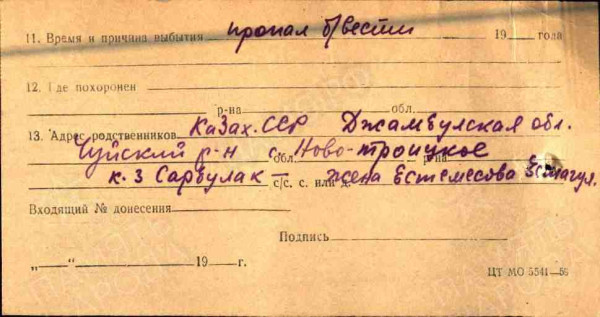 11. Время и причина выбытия пропал б/вести 19 года
12. Где похоронен
р-на обл.
13. Адрес родственников Казах. ССР Джамбулская обл.
Чуйский р-н обл. с. Ново-троицкое р-на
к-з Сарбулак — с/с. с. или д. жена Естемесова
Входящий № донесения
Подпись
„ “ 19 г.
ЦТ МО 5541—56